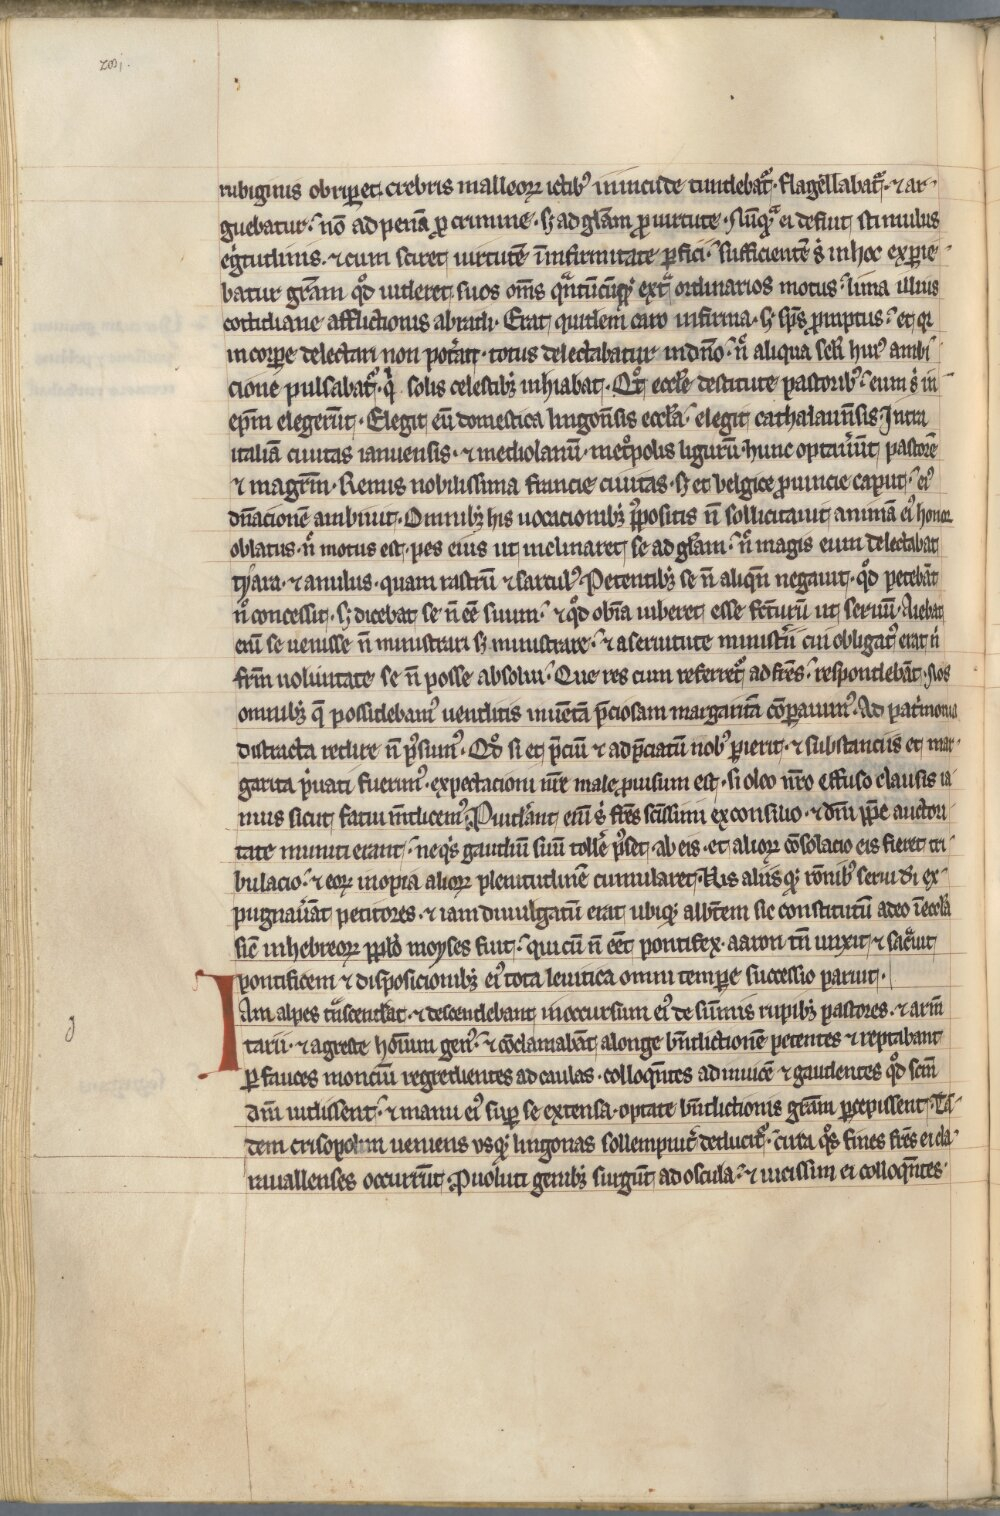 rubiginis obriperet crebris malleorꝝ ictibꝰ in incude tundebatᷣ. flagellabatᷣ. ⁊ ar-
guebatur. nō ad penā ꝓ crimine. sꝫ ad gl̄am ꝓ uirtute. Nūqᷓ ei defuit stimulus
egᵃtudinis. ⁊ cum sciret uirtutē ī infirmitate ꝑfici. sufficientē sᷓ in hoc experie-
batur gr̄am qͦd uideret suos om̄s qᷓntūcūqꝫ extᷓ ordinarios motus. lima illius
cottidiane afflictionis abradi. Erat quidem caro infirma. sꝫ sp̄s promptus. et qꝛ
in corꝑe delectari non potᵃat. totus delectabatur in dn̄o. n̄ aliqua seclī huiꝰ ambi-
cione pulsabatᷣ. qᷓ solis celestibꝫ inhiabat. Qͦt eccl̄e destitute pastoribꝰ. eum sᷓ in
ep̄m elegerūt. Elegit eū domestica lingon̄sis eccl̄a. elegit cathalaun̄sis. Intra
italiā ciuitas ianuensis. ⁊ mediolanū. metͦpolis ligurū. hunc optauᵉ̄ūt pastorē
⁊ magr̄m. Remis nobilissima francie ciuitas. sꝫ et belgice ꝓuincie caput. eiꝰ
dn̄acionē ambiuit. Omnibꝫ his uocacionibꝫ p̄positis n̄ sollicitauit animā eiꝰ honor
oblatus. n̄ motus est pes eius ut inclinaret se ad gl̄am. n̄ magis eum delectabat
tyara. ⁊ anulus. quam rastrū ⁊ sarculꝰ. Petentibꝫ se n̄ aliqn̄ negauit. qͦd petebāt
n̄ concessit. sꝫ dicebat se n̄ eē suum. ⁊ qͦd ob̄ia iuberet esse fc̄turū ut seruū. Aiebat
enī se uenisse n̄ ministrari sꝫ ministrare. ⁊ a seruitute ministᵉ̄ii cui obligatꝰ erat n̄
fr̄m uoluntate se n̄ posse absolui. Que res cum referretᷣ ad fr̄es. respondebāt. Nos
omnibꝫ q̄ possidebamꝰ uenditis inuētā p̄ciosam margaritā cōparauimꝰ. Ad patᵃmonia
distracta redire n̄ p̄sumꝰ. Qͦd si et p̄ciū ⁊ ad p̄ciatū nobꝰ perierit. ⁊ substanciis et mar-
garita pᵃuati fuerimꝰ. expectacioni nr̄e male ꝓuisum est. si oleo nr̄o effuso clausis ia-
nuis sicut fatui mēdicemꝰ. Ꝓuidᵉ̄ant enī sᷓ fr̄es sc̄issimi ex consilio. ⁊ dn̄i pp̄e auctori-
tate muniti erant. ne qᵃs gaudiū suū tollᵉ̄e p̄sēt ab eis. et aliorꝝ cōsolacio eis fieret tri-
bulacio. ⁊ eorꝝ inopia aliorꝝ plenitudinē cumularet. His aliisqꝫ rōnibꝰ serui di ex-
pugnauᵉ̄āt petitores. ⁊ iam diuulgatū erat ubiqꝫ abb̄tem sic constitutū a deo ī eccl̄a
sic̄ in hebreorꝝ pp̄lo moyses fuit. qui cū n̄ eēt pontifex. aaron tn̄ unxit ⁊ sacᵃuit
pontificem ⁊ disposicionibꝫ eiꝰ tota leuitica omni tempore successio paruit.
Iam alpes tᷓscend̄at. ⁊ descendebant in occursum eiꝰ de sūmis rupibꝫ pastores. ⁊ arm̄
tarii. ⁊ agreste hoīum genꝰ. ⁊ cōclamabāt a longe bn̄dictionē petentes ⁊ reptabant
ꝑ fauces monciū regredientes ad caulas. colloqn̄tes ad inuicē ⁊ gaudentes qͦd scm̄
dn̄i uidissent. ⁊ manu eiꝰ suꝑ se extensa. optate bn̄dictionis gr̄am percepissent. Tā-
dem crisopolim ueniens usqꝫ lingonas sollempnitᷣ deducitᷣ. citra qͦs fines fr̄es ei cla-
reuallenses occurrūt. Ꝓuoluti genibꝫ surgūt ad oscula. ⁊ uicissim ei colloqn̄tes.